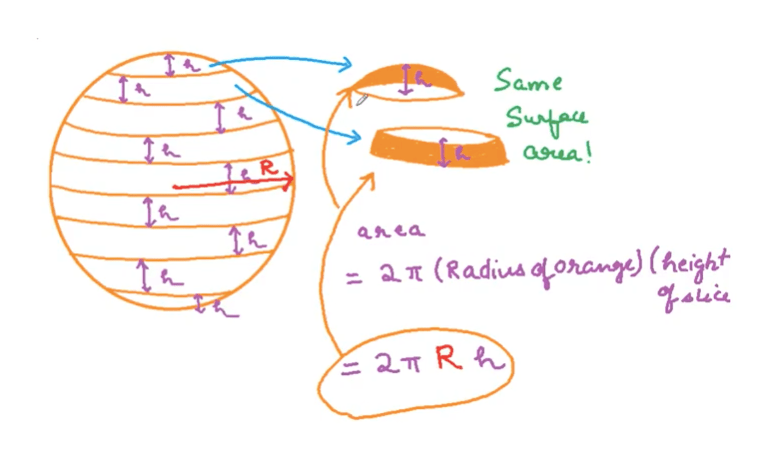 h
h
h
h
h
R
h
h
h
h
h
h
Same
Surface
area!
area
= 2π (Radius of orange) (height
of slice
= 2π R h